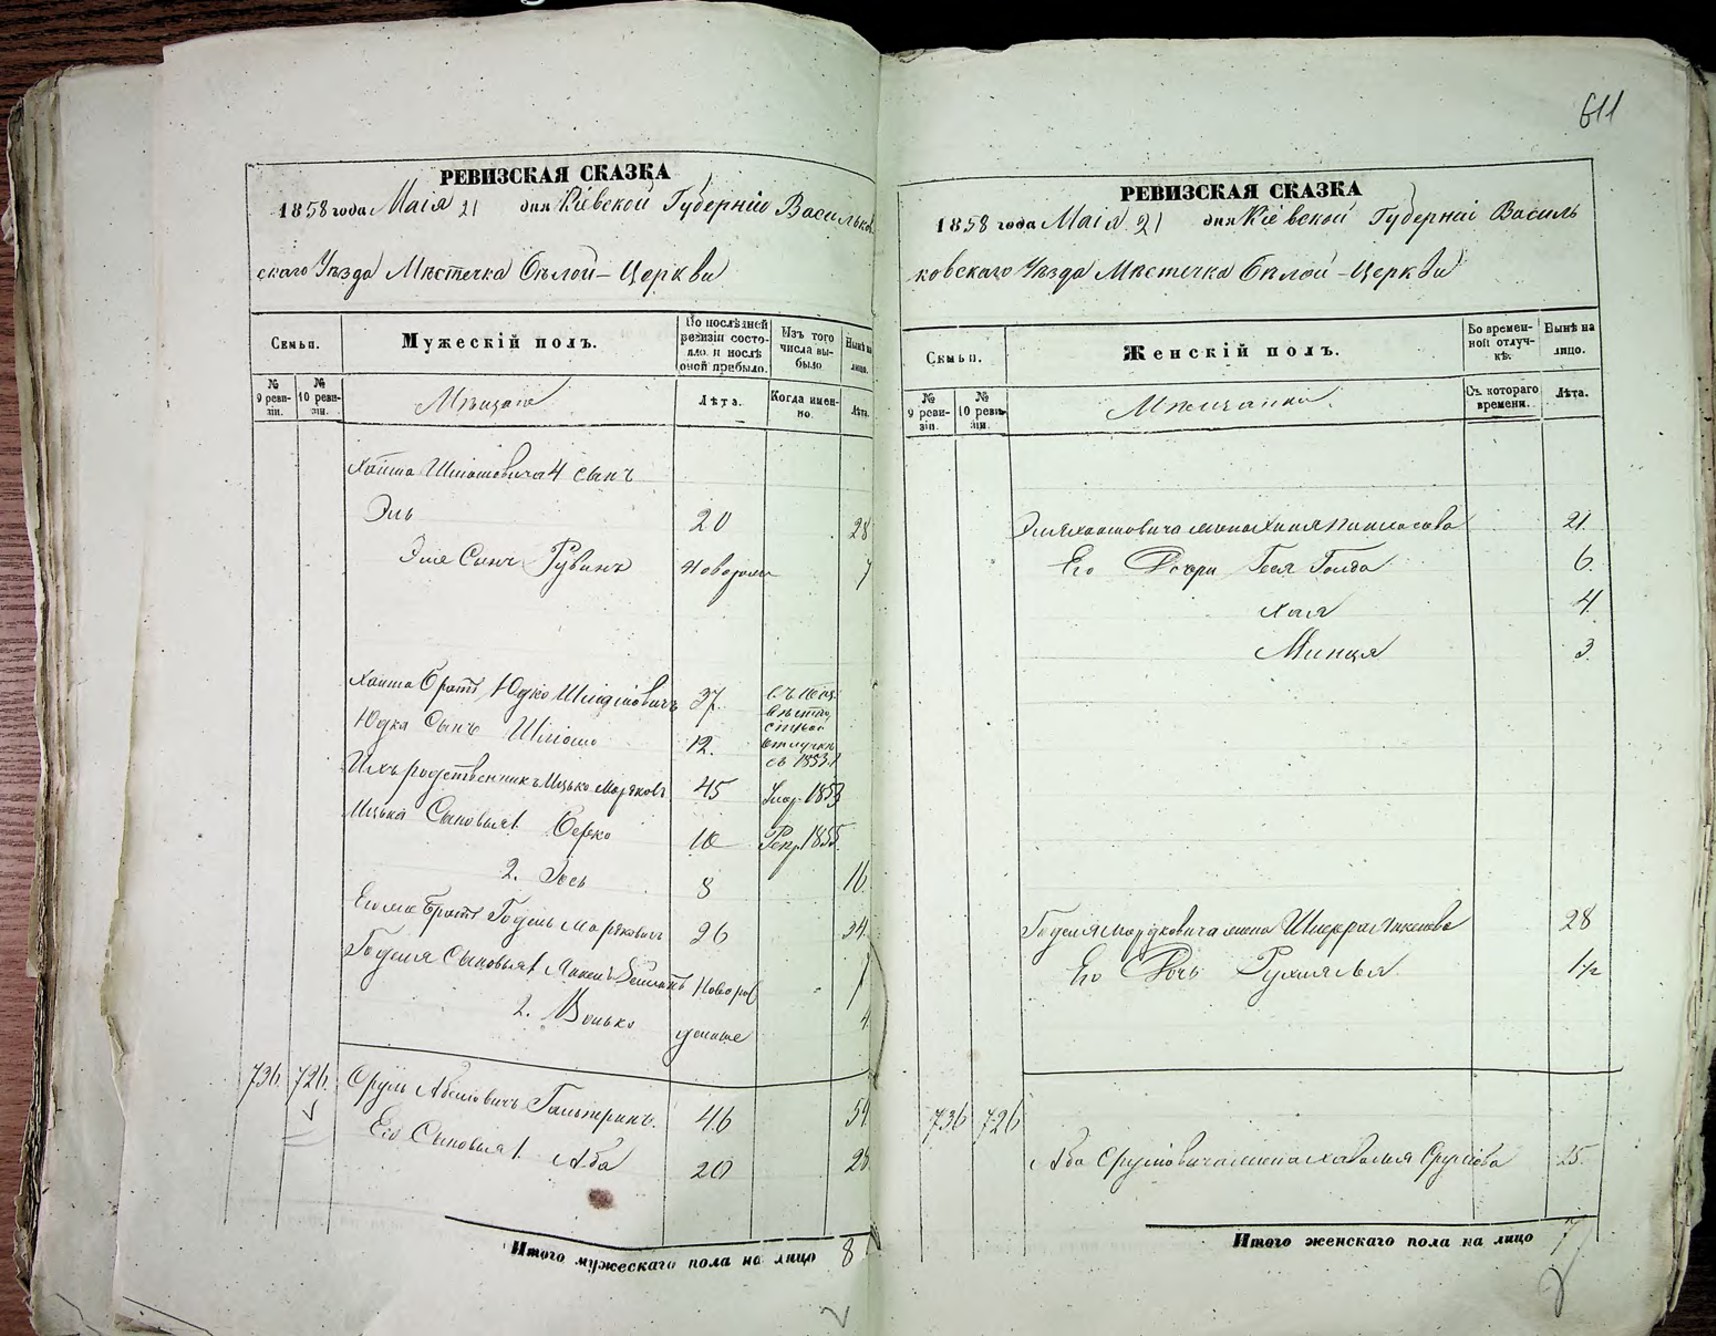 611
РЕВИЗСКАЯ СКАЗКА
1858 года Маія 21 дня Кіевской Губерніи Васильков
скаго Уѣзда Мѣстечка Бѣлой-Церкви
Семьи.
Мужескій полъ.
По послѣдней ревизіи состояло и послѣ оной прибыло.
Изъ того числа выбыло.
Нынѣ на лицо.
№ 9 ревизіи.
№ 10 ревизіи.
Мѣщане
Лѣта.
Когда именно.
Лѣта.
Хаима Шліомовича 4 сынъ
Эль 20 28
Эля Сынъ Рувинъ новорож 7
Хаима братъ Юдко Шліомовичъ 37.
Юдка Сынъ Шліомо 12. съ 1853
Ихъ родственникъ Ицько Моркович 45 1853
Ицька Сыновья 1. Берко 10 1855
2. Іось 8 16.
Его же братъ Годель Морковичъ 26 34.
Годеля Сыновья 1. Новорож
2. Волько денные 4
736. 726. Сруль Абовичъ Гальперинъ. 46 54
Его Сыновья 1. Аба 20 28
Итого мужескаго пола на лицо 8
РЕВИЗСКАЯ СКАЗКА
1858 года Маія 21 дня Кіевской Губерніи Василь
ковскаго Уѣзда Мѣстечка Бѣлой-Церкви
Семьи.
Женскій полъ.
Во временной отлучкѣ.
Нынѣ на лицо.
№ 9 ревизіи.
№ 10 ревизіи.
Мѣщанки.
Съ котораго времени.
Лѣта.
Эля Хаимовича жена Ханя 21.
Его Дочери Гея Голда 6.
Хая 4.
Минця 3.
Годеля Мордковича жена Шифра 28
Его Дочь Рухля Лея 1½
736 726
Аба Срулiовича жена Хавалия Срулiова 25.
Итого женскаго пола на лицо 7